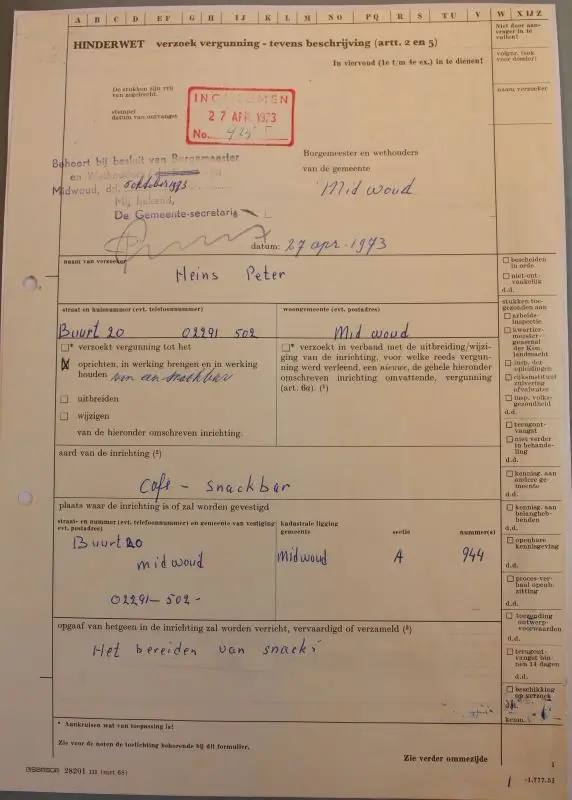 A B C D E F G H I J K L M N O P Q R S T U V W X IJ Z
HINDERWET verzoek vergunning - tevens beschrijving (artt. 2 en 5)
In viervoud (1e t/m 4e ex.) in te dienen!
Niet door aan-
vrager in te
vullen!
volgnr. (ook
voor dossier)
naam verzoeker
De stukken zijn vrij
van zegelrecht.
stempel
datum van ontvangst
INGEKOMEN
27 APR. 1973
No. 925
Behoort bij besluit van Burgemeester
en Wethouders van
Midwoud, d.d. 5 oktober 1973
Mij bekend,
De Gemeente-secretaris
Burgemeester en wethouders
van de gemeente
Midwoud
datum: 27 apr. 1973
naam van verzoeker
Heins Peter
straat en huisnummer (evt. telefoonnummer)
woongemeente (evt. postadres)
Buurt 20 02291 502
Midwoud
* verzoekt vergunning tot het
oprichten, in werking brengen en in werking
houden van een snackbar
uitbreiden
wijzigen
van de hieronder omschreven inrichting.
* verzoekt in verband met de uitbreiding/wijzi-
ging van de inrichting, voor welke reeds vergun-
ning werd verleend, een nieuwe, de gehele hieronder
omschreven inrichting omvattende, vergunning
(art. 6a). (1)
aard van de inrichting (2)
Café - snackbar
plaats waar de inrichting is of zal worden gevestigd
straat- en nummer (evt. telefoonnummer) en gemeente van vestiging
(evt. postadres)
kadastrale ligging
gemeente
sectie
nummer(s)
Buurt 20
midwoud
02291-502-
Midwoud
A
944
opgaaf van hetgeen in de inrichting zal worden verricht, vervaardigd of verzameld (3)
Het bereiden van snacks
bescheiden
in orde
niet-ont-
vankelijk
d.d.
stukken toe-
gezonden aan
arbeids-
inspectie
kwartier-
meester-
generaal
der Kon.
landmacht
insp. der
opleidingen
rijksinstituut
zuivering
afvalwater
insp. volks-
gezondheid
d.d.
terugont-
vangst
niet verder
in behande-
ling
d.d.
kennisg. aan
andere ge-
meente
d.d.
kennisg. aan
belangheb-
benden
d.d.
openbare
kennisgeving
d.d.
proces-ver-
baal openb.
zitting
d.d.
toezending
ontwerp-
voorwaarden
d.d.
terugont-
vangst bin-
nen 14 dagen
d.d.
beschikking
op verzoek
d.d.
kenm.
* Aankruisen wat van toepassing is!
Zie voor de noten de toelichting behorende bij dit formulier.
Zie verder ommezijde
1
samsom 28201 III (mrt 68)
1
-1.777.51